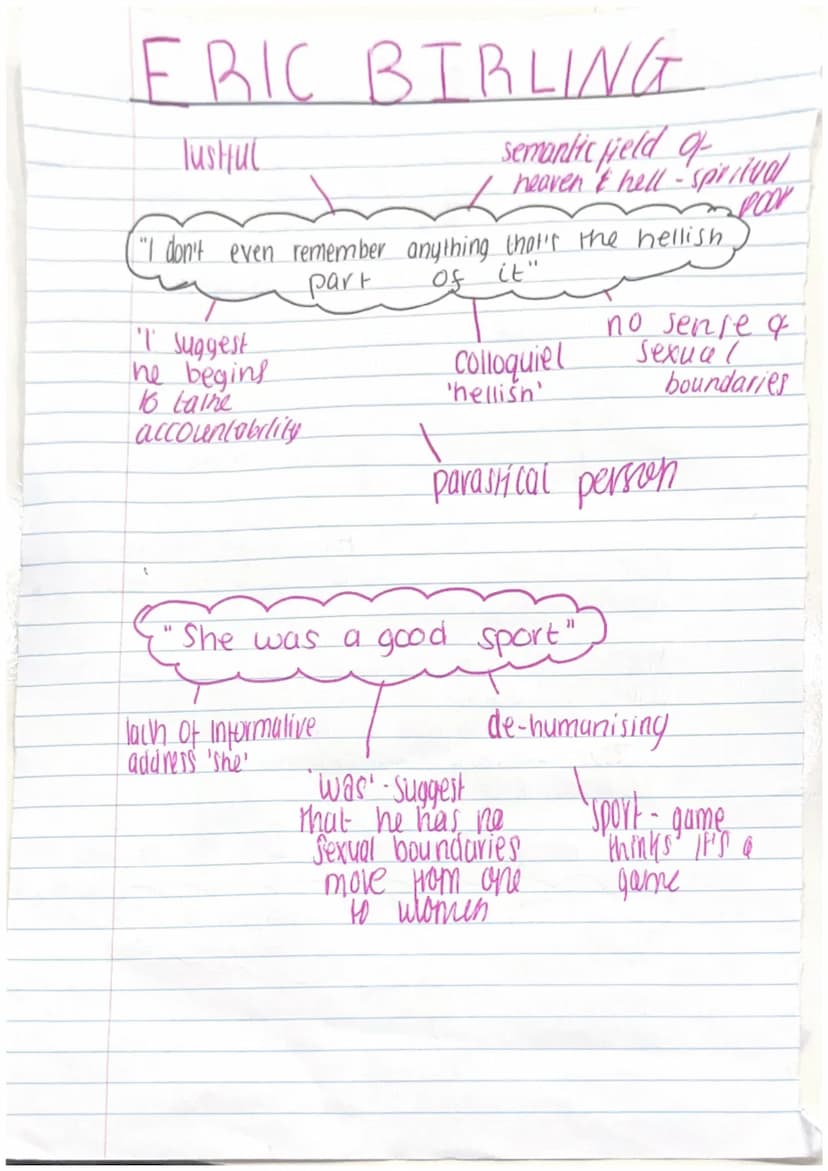 ERIC BIRLING
lustful
semantic field of
heaven & hell - spiritual
poor
"I don't even remember anything that's the hellish
part of it"
'I' suggest
he begins
to take
accountability
colloquiel
'hellish'
no sense of
sexual
boundaries
parasitical person
"She was a good sport"
lack of informative
address 'she'
de-humanising
'was' - suggest
that he has no
sexual boundaries
move from one
to women
'sport - game
thinks it's a
game